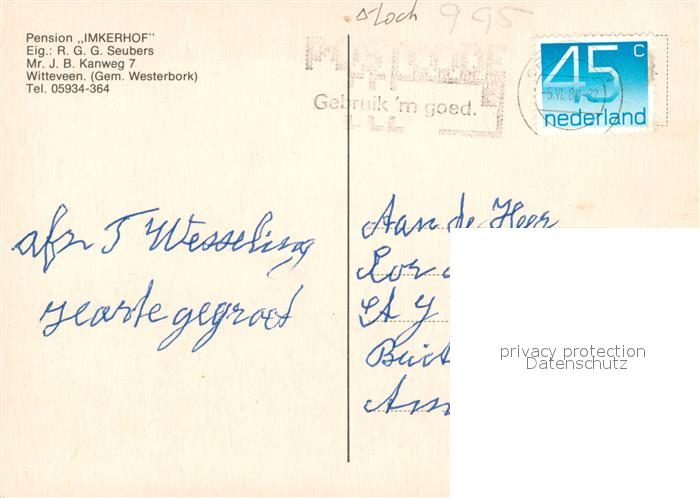 Pension „IMKERHOF"
Eig.: R. G. G. Seubers
Mr. J. B. Kanweg 7
Witteveen. (Gem. Westerbork)
Tel. 05934-364
995
POSTCODE
Gebruik 'm goed.
45 c
nederland
-5.VI.80
afz. J Wesseling
Harte gegroet
Aan de Heer
privacy protection
Datenschutz